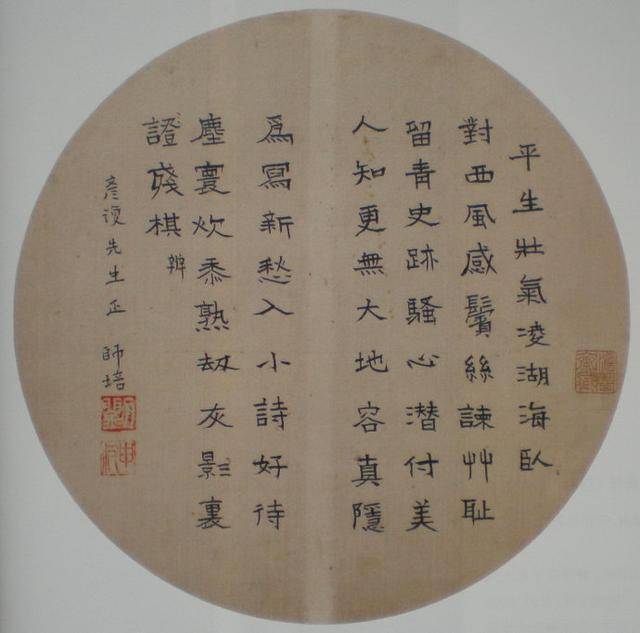 平生壯氣凌湖海臥
對西風感鬢絲諫艸耻
留青史跡騷心潛付美
人知更無大地容真隱
爲寫新愁入小詩好待
塵寰炊黍熟刼灰影裏
證殘棋 辨
彥復先生正 師培
申叔